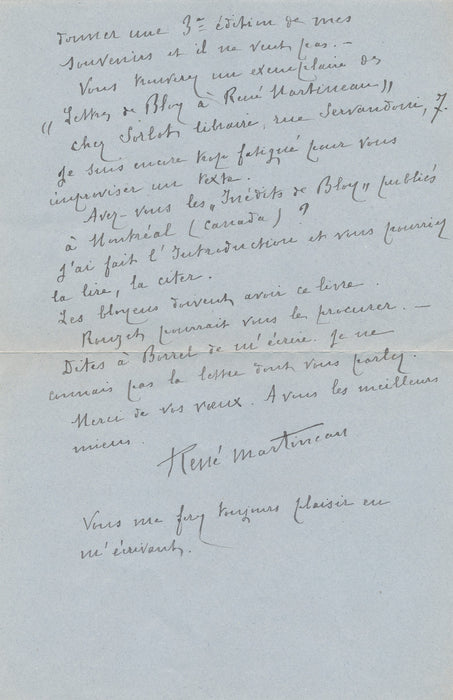 donner une 3me édition de mes
souvenirs et il ne veut pas. —
Vous trouverez un exemplaire des
"Lettres de Bloy à René Martineau"
chez Sorlot, libraire, rue Servandoni, 7.
Je suis encore trop fatigué pour vous
improviser un texte.
Avez-vous les "Inédits de Bloy" publiés
à Montréal (Canada) ?
J'ai fait l'Introduction et vous pourriez
la lire, la citer.
Les bloyens doivent avoir ce livre.
Rouzet pourrait vous le procurer. —
Dites à Borrel de m'écrire. Je ne
connais pas la lettre dont vous parlez.
Merci de vos vœux. A vous les meilleurs
miens.
René Martineau
Vous me ferez toujours plaisir en
m'écrivant.